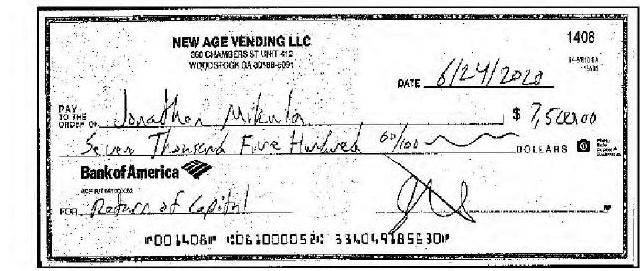 NEW AGE VENDING LLC
1408
360 CHAMBERS ST UNIT 412
WOODSTOCK GA 30188-
DATE 6/24/2020
PAY
TO THE
ORDER OF Jonathan $ 7,500.00
Seven Thousand Five Hundred /100 DOLLARS
Bank of America
FOR Return of Capital
⑈001408⑈ ⑆061000052⑆ 334049185630⑈